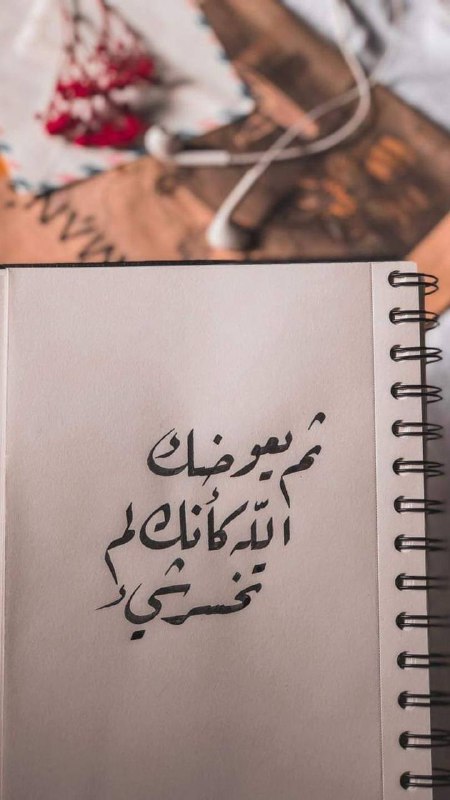 ثم يعوضك
الله كأنك لم
تخسر شيء